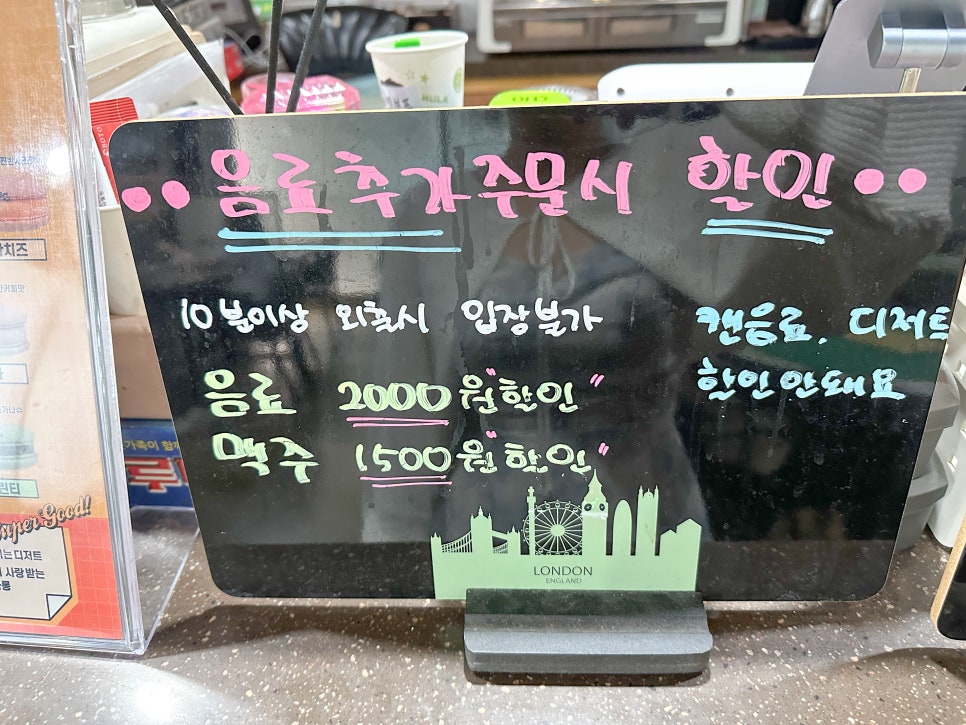 음료 추가 주문시 할인
10분이상 외출시 입장불가
캔음료, 디저트
할인 안돼요
음료 2000원 "할인"
맥주 1500원 "할인"
LONDON
ENGLAND
HULK
치즈
가족이 함께
루
린티
Super Good!
는 디저트
사랑받는
롱